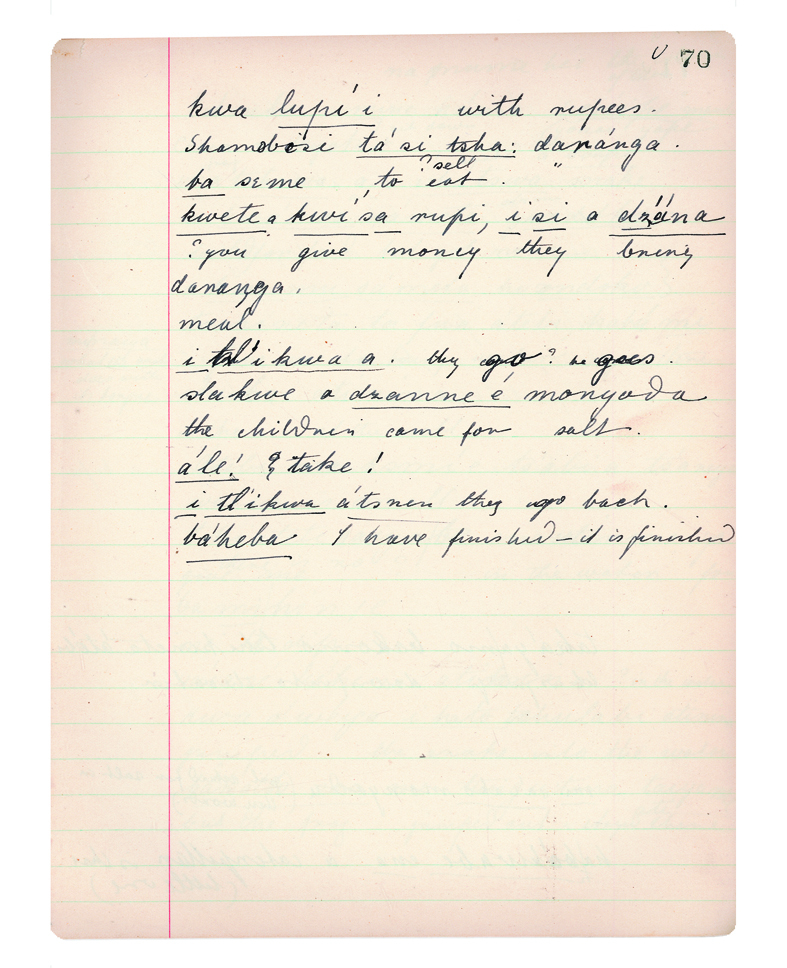 v 70
kwa lupí i with rupees.
Shambisi tá si tsha: daránga.
? sell "
ba seme to eat.
kwete a kwísa rupi, i si a dzána
? you give money they bring
daranga.
meal.
i tl'ikwa a. they go? he goes.
slakwe a dzanne é monyoða
the children come for salt.
ále! take!
i tl'ikwa átsnen they go back.
báheba I have finished – it is finished